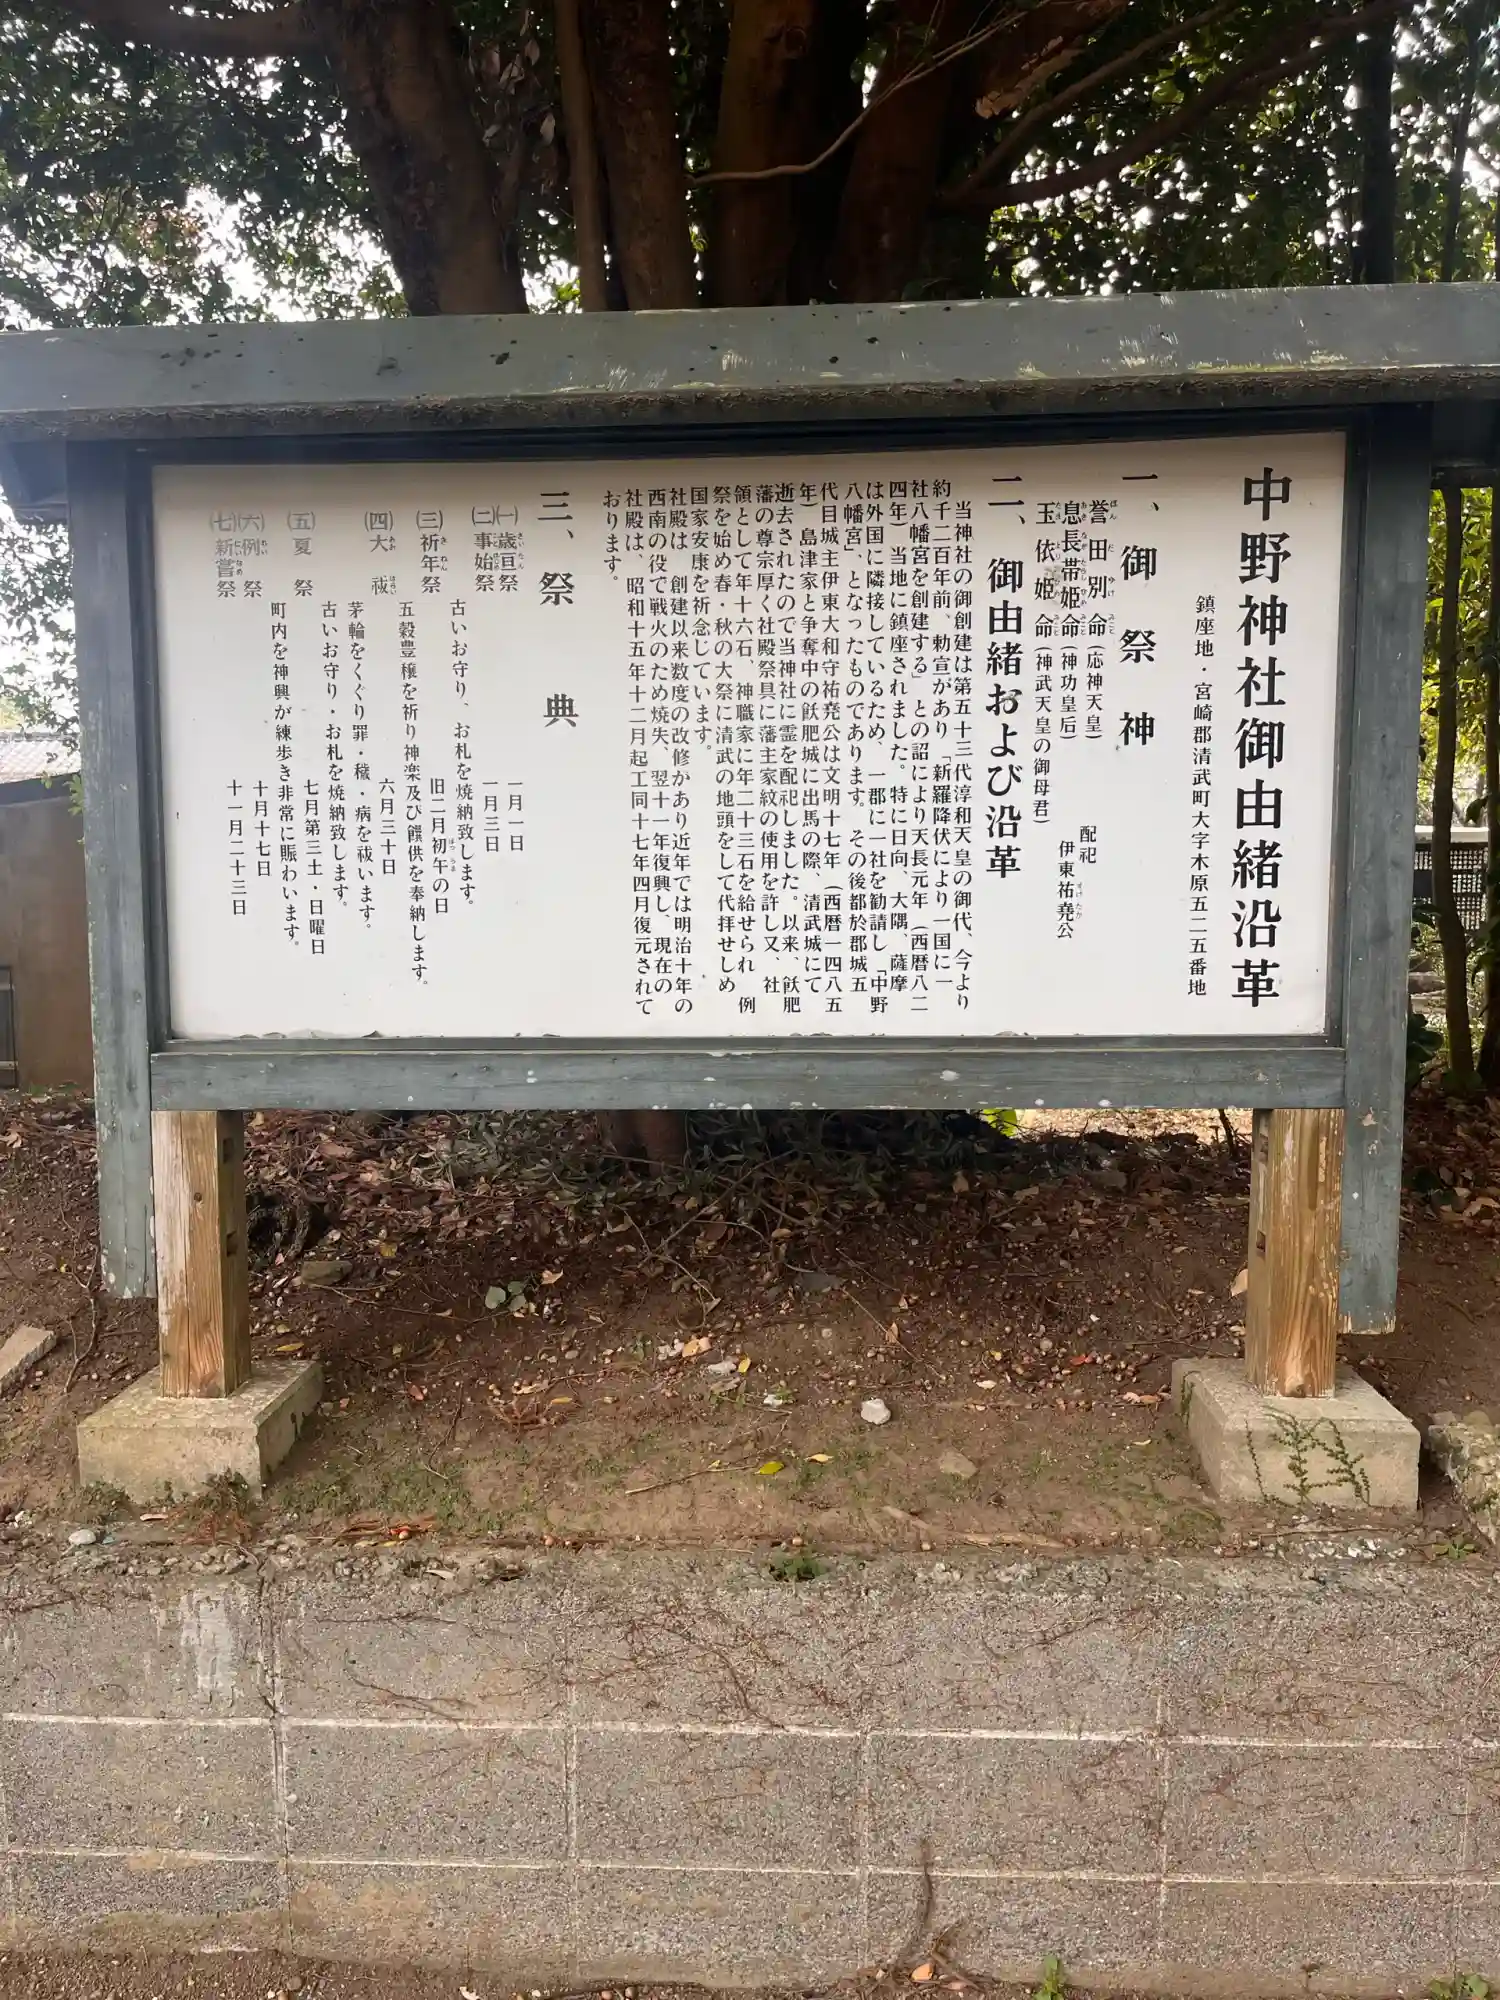 中野神社御由緒沿革
鎮座地・宮崎郡清武町大字木原五二五番地
一、御祭神
誉田別命(応神天皇)
息長帯姫命(神功皇后)
玉依姫命(神武天皇の御母君)
配祀
伊東祐堯公
二、御由緒および沿革
当神社の御創建は第五十三代淳和天皇の御代、今より
約千二百年前、勅宣があり「新羅降伏により一国に一
社八幡宮を創建する」との詔により天長元年(西暦八二
四年)当地に鎮座されました。特に日向、大隅、薩摩
は外国に隣接しているため、一郡に一社を勧請し「中野
八幡宮」、となったものであります。その後都於郡城五
代目城主伊東大和守祐堯公は文明十七年(西暦一四八五
年)島津家と争奪中の飫肥城に出馬の際、清武城にて
逝去されたので当神社に霊を配祀しました。以来、飫肥
藩の尊宗厚く社殿祭具に藩主家紋の使用を許し又、社
領として年十六石、神職家に年二十三石を給せられ 例
祭を始め春・秋の大祭に清武の地頭をして代拝せしめ
国家安康を祈念じています。
社殿は 創建以来数度の改修があり近年では明治十年の
西南の役で戦火のため焼失、翌十一年復興し、現在の
社殿は、昭和十五年十二月起工同十七年四月復元されて
おります。
三、祭典
㈠歳亘祭 一月一日
㈡事始祭 一月三日
古いお守り、お札を焼納致します。
㈢祈年祭 旧二月初午の日
五穀豊穣を祈り神楽及び饌供を奉納します。
㈣大祓 六月三十日
茅輪をくぐり罪・穢・病を祓います。
古いお守り・お札を焼納致します。
㈤夏祭 七月第三土・日曜日
町内を神輿が練歩き非常に賑わいます。
㈥例祭 十月十七日
㈦新嘗祭 十一月二十三日